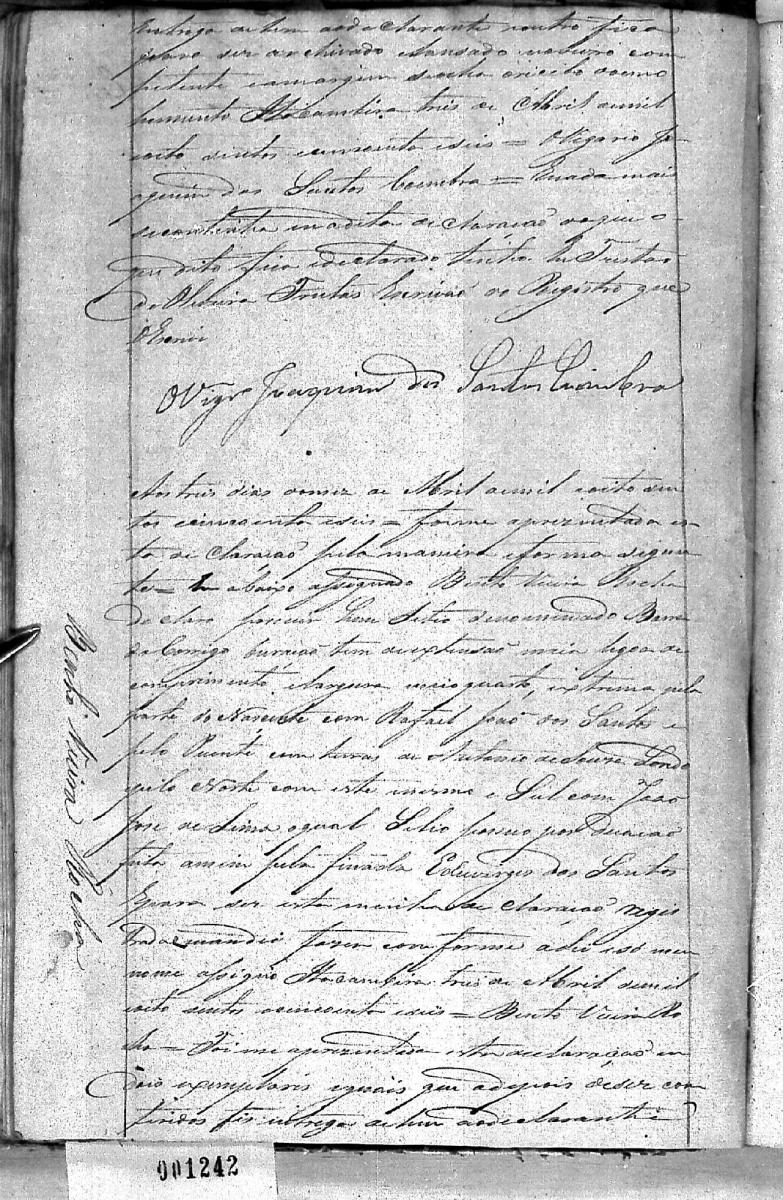 entrega de hum ao declarante e outro fica
para ser archivado e lansado no livro com
petente e a margem do acha o recibo do emo
lumento Itacambira tres de Abril de mil
oito centos e cincoenta e seis = O Vigario Jo-
aquim dos Santos Coimbra = E nada mais
se continha na dita declaração do que o
que dito fica e declarado tenho Eu Tristão
de Oliveira Freitas Escrivão do Registro que
o Escrevi
O Vigr.º Joaquim dos Santos Coimbra
Aos tres dias do mez de Abril de mil e oito cen
tos e cincoenta e seis = foi me aprezentada es-
ta declaração pela maneira e forma seguin
te = Eu abaixo assignado Bento Vieira Rocha
declaro possuir hum Sitio denominado Barra
do Corrigo tem de extensão meia legoa de
comprimento e largura meio quarto, extrema pela
parte do Nascente com Rafael João dos Santos e
pelo Puente com terras de Antonio de Souza
e pelo Norte com este mesmo e Sul com João
Jose de Lima o qual Sitio possuo por Duacão
feita a mim pela finada Eduviges dos Santos
E para ser esta minha declaração regis
trada mandei fazer conforme a lei e so meu
nome assigno Itacambira tres de Abril de mil
oito centos e cincoenta e seis = Bento Vieira Ro
cha = Foi me aprezentada esta declaração em
dois exemplares eguais que a depois de ser con
feridos fis entrega de hum ao declarante
Bento Vieira Rocha
001242